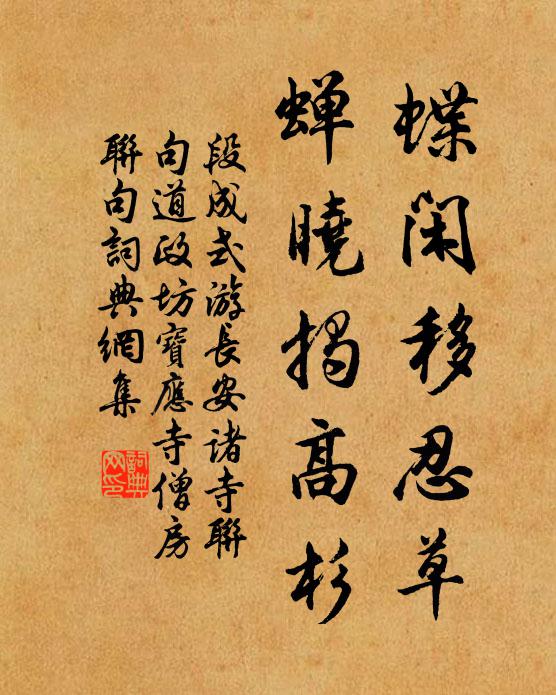 蝶閑移忍草
蝉曉揭高杉
段成式游長安诸寺聯
句道政坊寶應寺僧房
聯句詞典網集
詞典网印